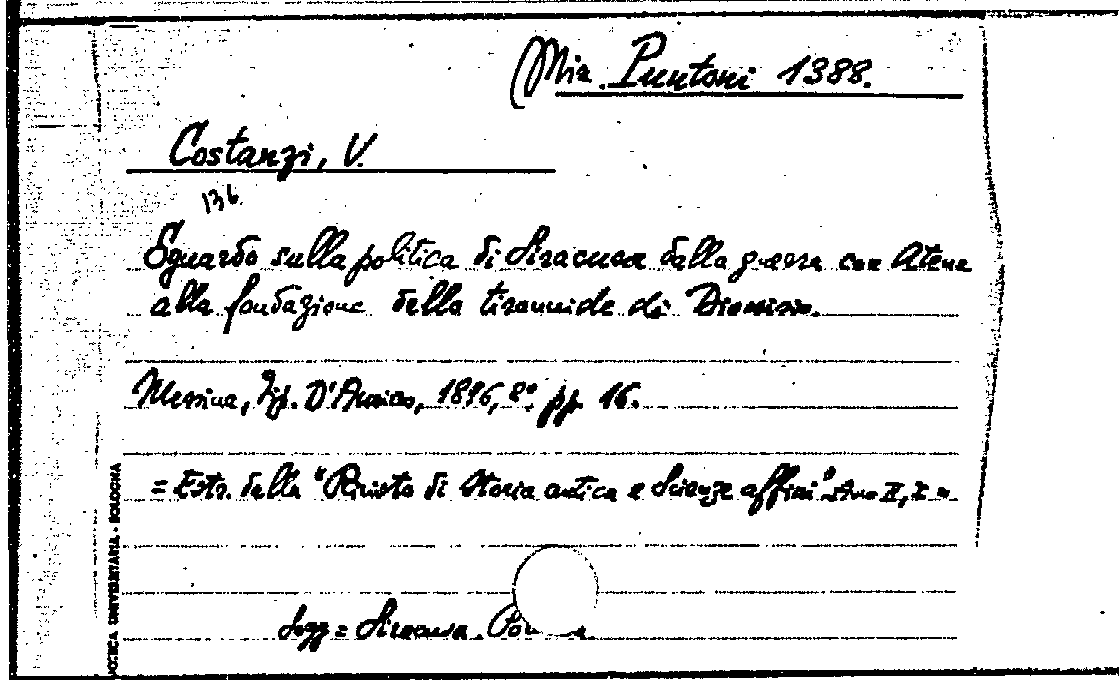 Mix. Puntoni 1388.
Costanzi, V.
136
Sguardo sulla politica di Siracusa dalla guerra con Atene
alla fondazione della tirannide di Dionisio.
Messina, Tip. D'Amico, 1896, 8°. pp. 16.
= Estr. dalla "Rivista di Storia antica e Scienze affini". Anno II, I =
Sogg = Siracusa.
OTECA UNIVERSITARIA - BOLOGNA